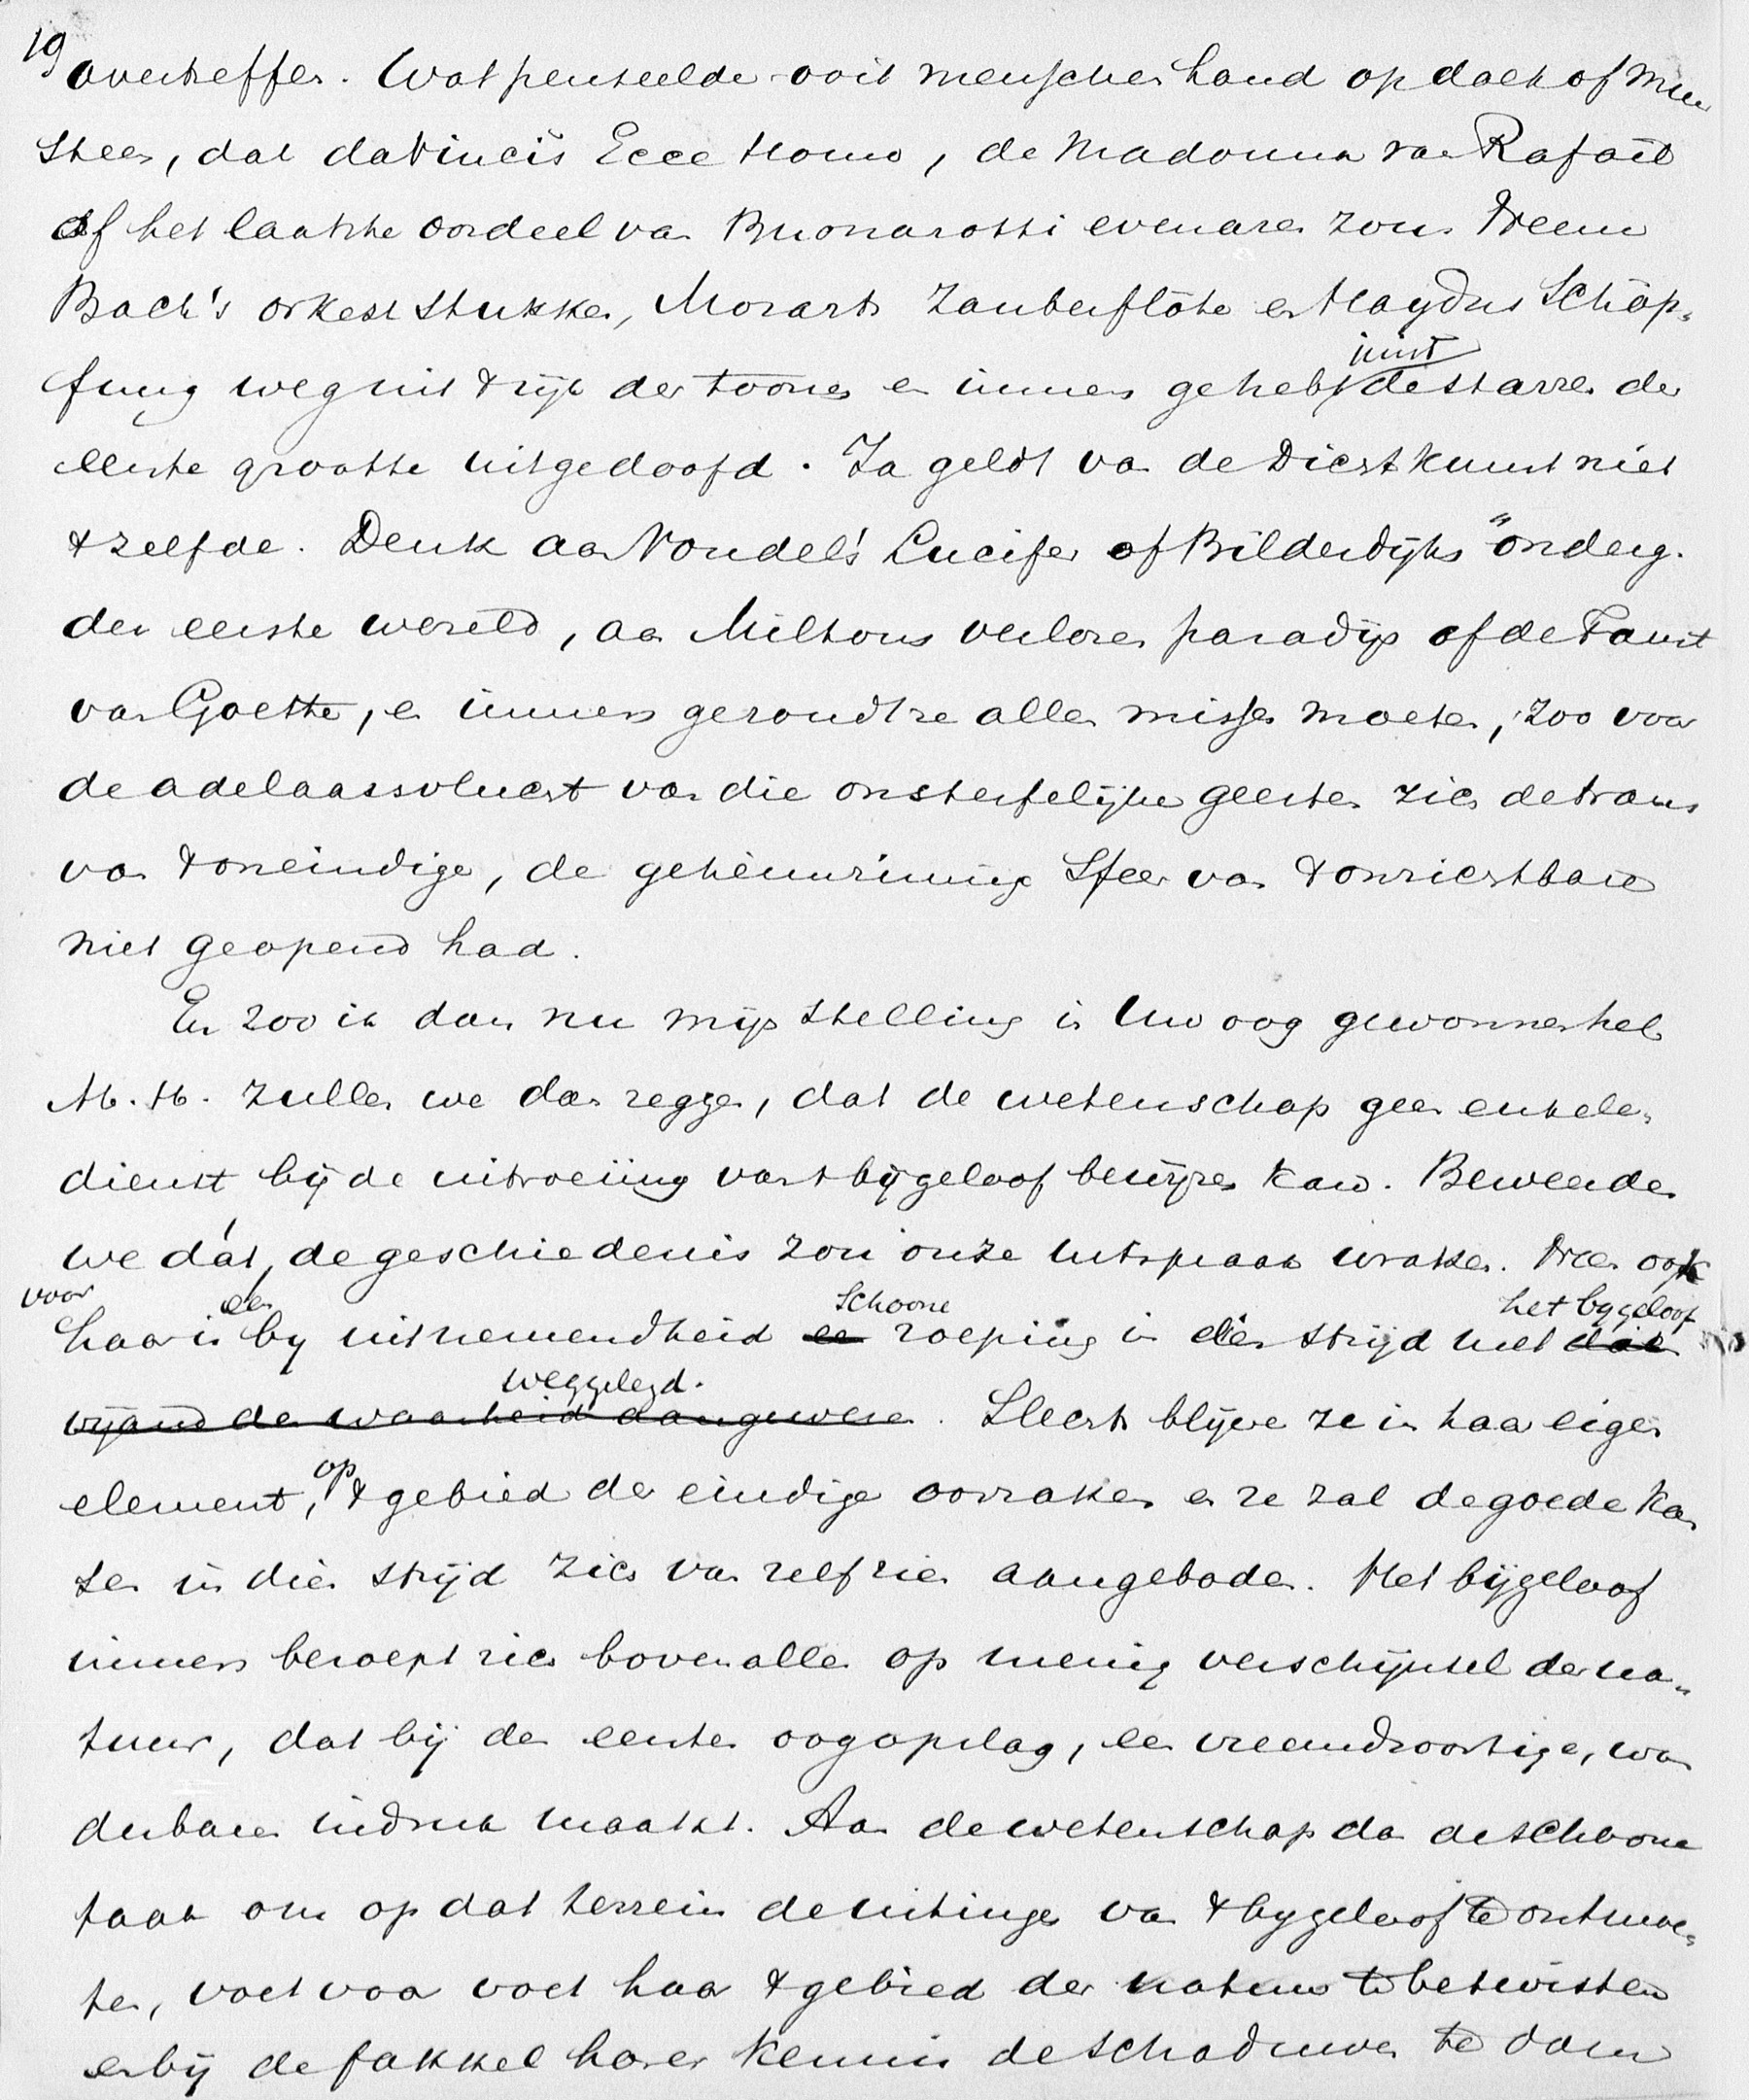 19
overtreffen. Wat penseelde ooit menschenhand op doek of muur
steen, dat da Vinci's Ecce Homo, de Madonna van Rafaël
of het laatste oordeel van Buonarotti evenaren zou. Neem
Bach's orkeststukken, Mozarts Zauberflöte en Haydns Schöp-
fung weg uit 't rijk der toonen en immers ge hebt juist de starren der
eerste grootte uitgedoofd. Ja geldt van de Dichtkunst niet
't zelfde. Denk aan Vondel's Lucifer of Bilderdijks "onderg.
der eerste wereld, aan Miltons verloren paradijs of de Faust
van Goethe, en immers ge zoudt ze allen missen moeten, zoo voor
de adelaarsvlucht van die onsterfelijke geesten zich de trans
van 't oneindige, de geheimzinnige Sfeer van 't onzichtbare
niet geopend had.
En zoo ik dan nu mijn stelling in Uw oog gewonnen heb
M.H. zullen we dan zeggen, dat de wetenschap geen enkele
dienst bij de uitroeiing van 't bijgeloof bewijzen kan. Beweerden
we dát, de geschiedenis zou onze uitspraak wraken. Neen ook
voor haar is een by uitnemendheid ee schoone roeping in dien strijd met dien het bygeloof
vijand der waarheid aangewezen weggelegd. Slechts blijve ze in haar eigen
element, op 't gebied der eindige oorzaken en ze zal de goede kan
sen in dien strijd zich van zelf zien aangeboden. Het bijgeloof
immers beroept zich bovenallen op menig verschijnsel der na-
tuur, dat bij den eersten oogopslag, een vreemdsoortige, won
derbaren indruk maakt. Aan de wetenschap dan de schoone
taak om op dat terrein de uitingen van 't bygeloof te ontmoe-
ten, voet voor voet haar 't gebied der natuur te betwisten
en bij de fakkel harer kennis de schaduwen te doen